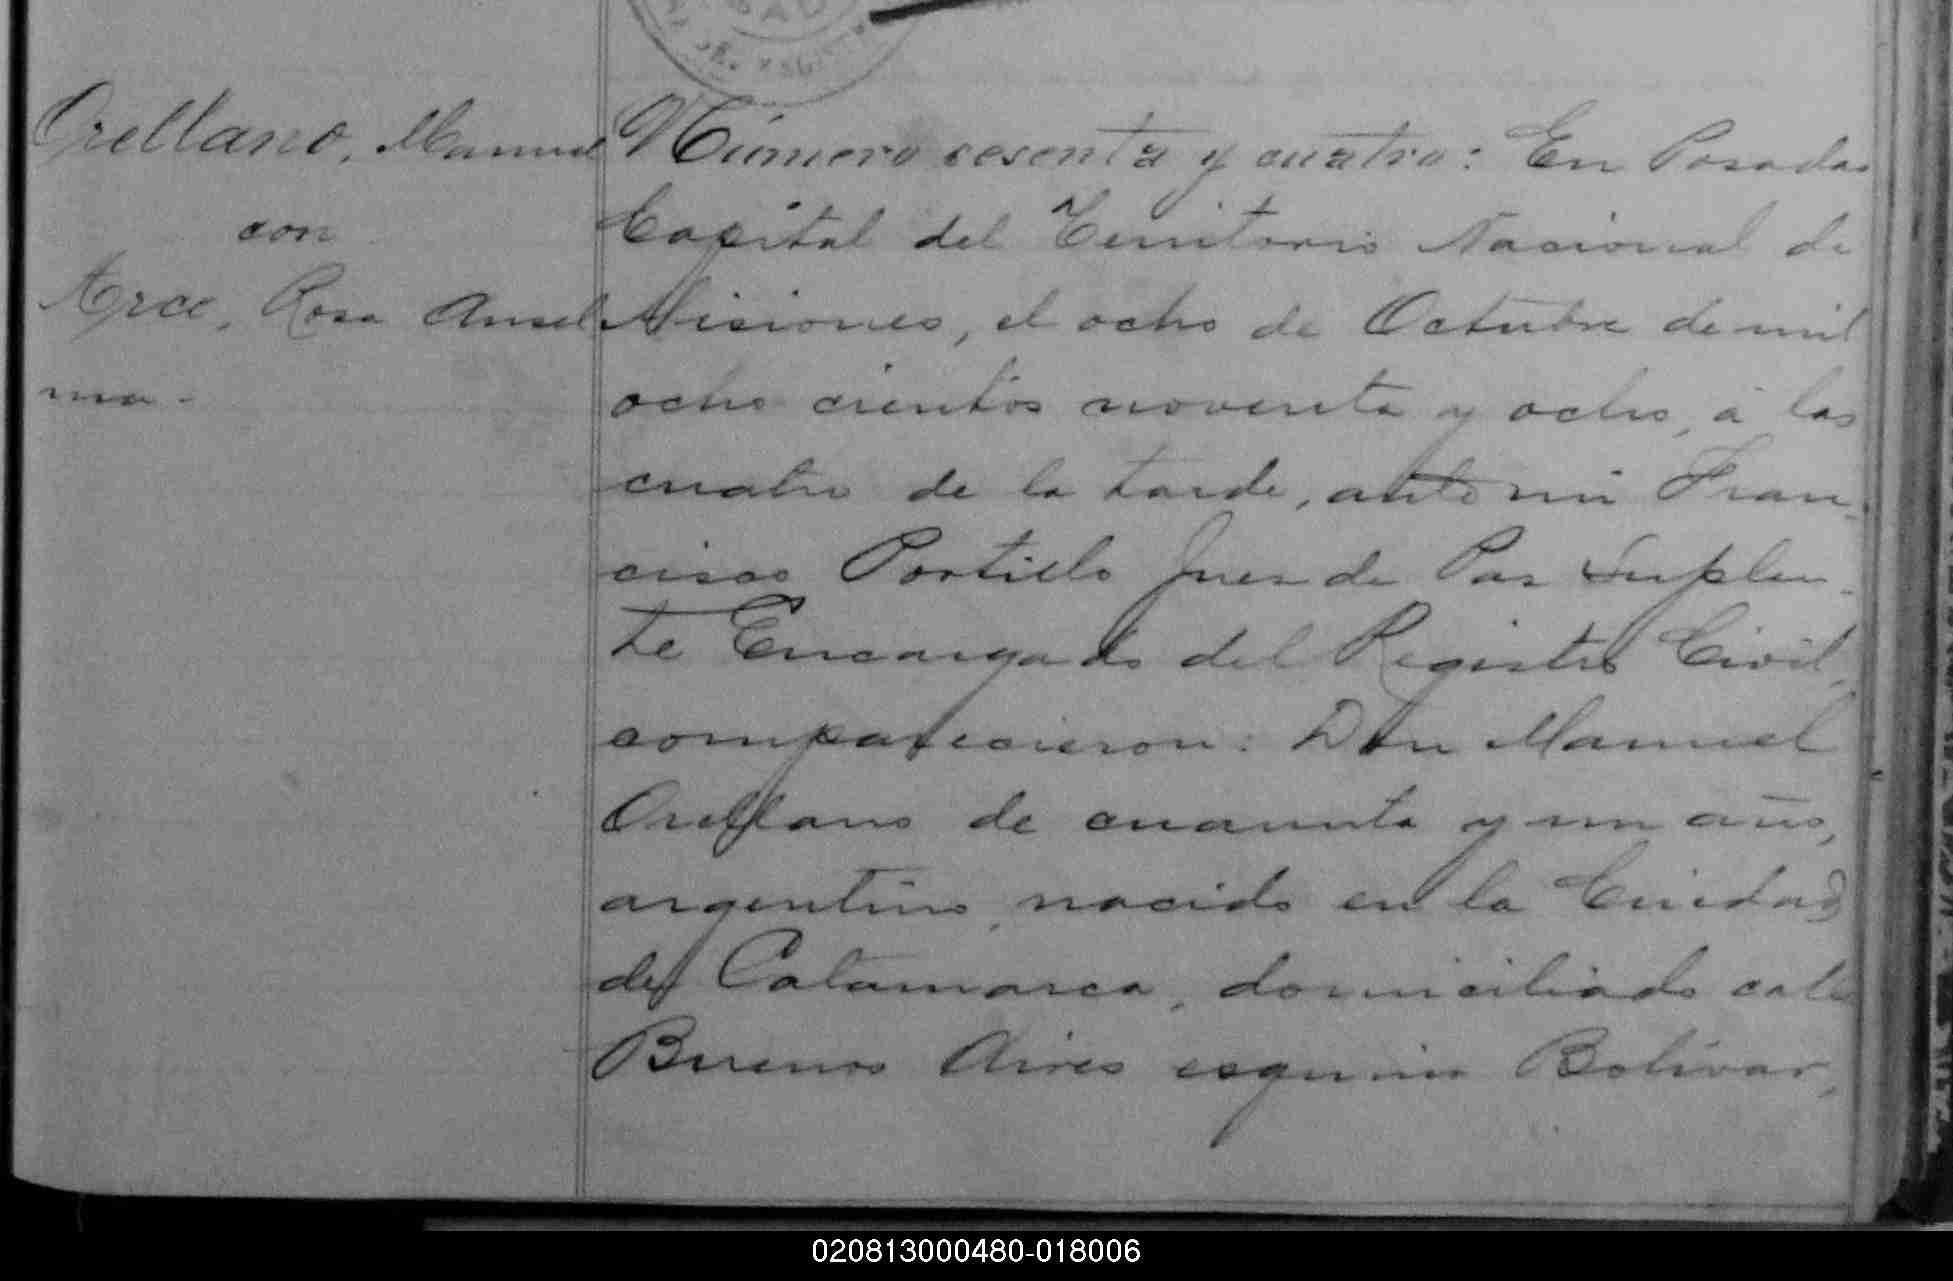 Orellano, Manuel
con
Arce, Rosa Ansel
ma -
Número sesenta y cuatro: En Posadas
Capital del Territorio Nacional de
Misiones, el ocho de Octubre de mil
ocho cientos noventa y ocho, á las
cuatro de la tarde, ante mi Fran-
cisco Portillo Juez de Paz Suplen-
te Encargado del Registro Civil,
comparecieron: Don Manuel
Orellano de cuarenta y un años,
argentino, nacido en la Ciudad
de Catamarca, domiciliado calle
Buenos Aires esquina Bolívar,
020813000480-018006